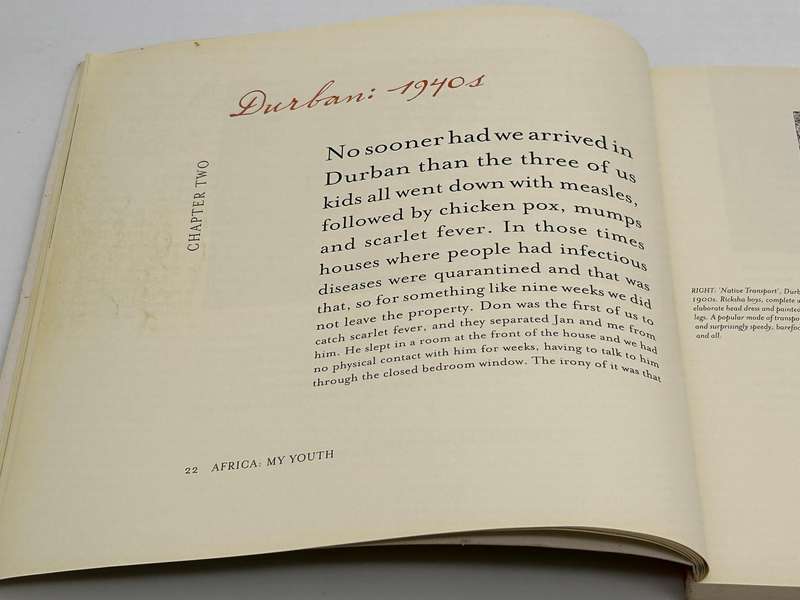 Durban: 1940s
CHAPTER TWO
No sooner had we arrived in
Durban than the three of us
kids all went down with measles,
followed by chicken pox, mumps
and scarlet fever. In those times
houses where people had infectious
diseases were quarantined and that was
that, so for something like nine weeks we did
not leave the property. Don was the first of us to
catch scarlet fever, and they separated Jan and me from
him. He slept in a room at the front of the house and we had
no physical contact with him for weeks, having to talk to him
through the closed bedroom window. The irony of it was that
22 AFRICA: MY YOUTH
RIGHT: 'Native Transport', Durb
1900s. Ricksha boys, complete w
elaborate head dress and painted
legs. A popular mode of transpo
and surprisingly speedy, barefoo
and all.